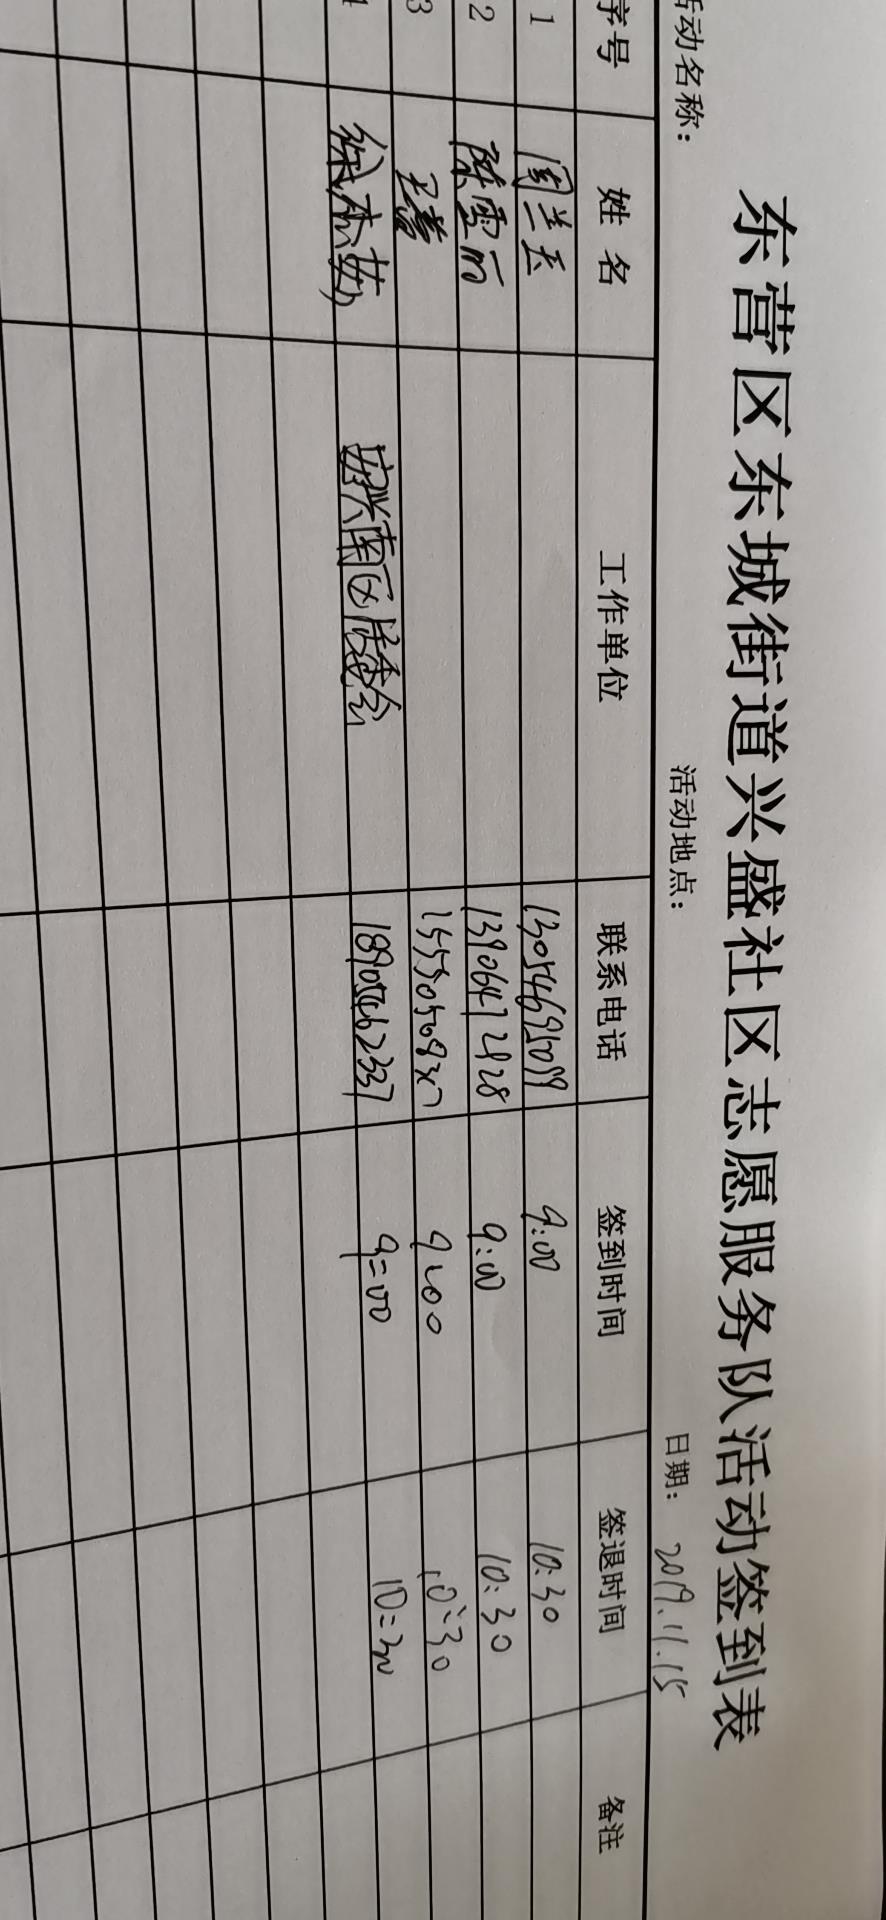 东营区东城街道兴盛社区志愿服务队活动签到表
活动名称： 活动地点： 日期： 2019.11.15
序号 姓名 工作单位 联系电话 签到时间 签退时间 备注
1 周兰玉 13054695099 9:00 10:30
2 陈雪丽 13906472928 9:00 10:30
3 9:00 10:30
4 安兴南区居委会 18905462337 9:00 10:30